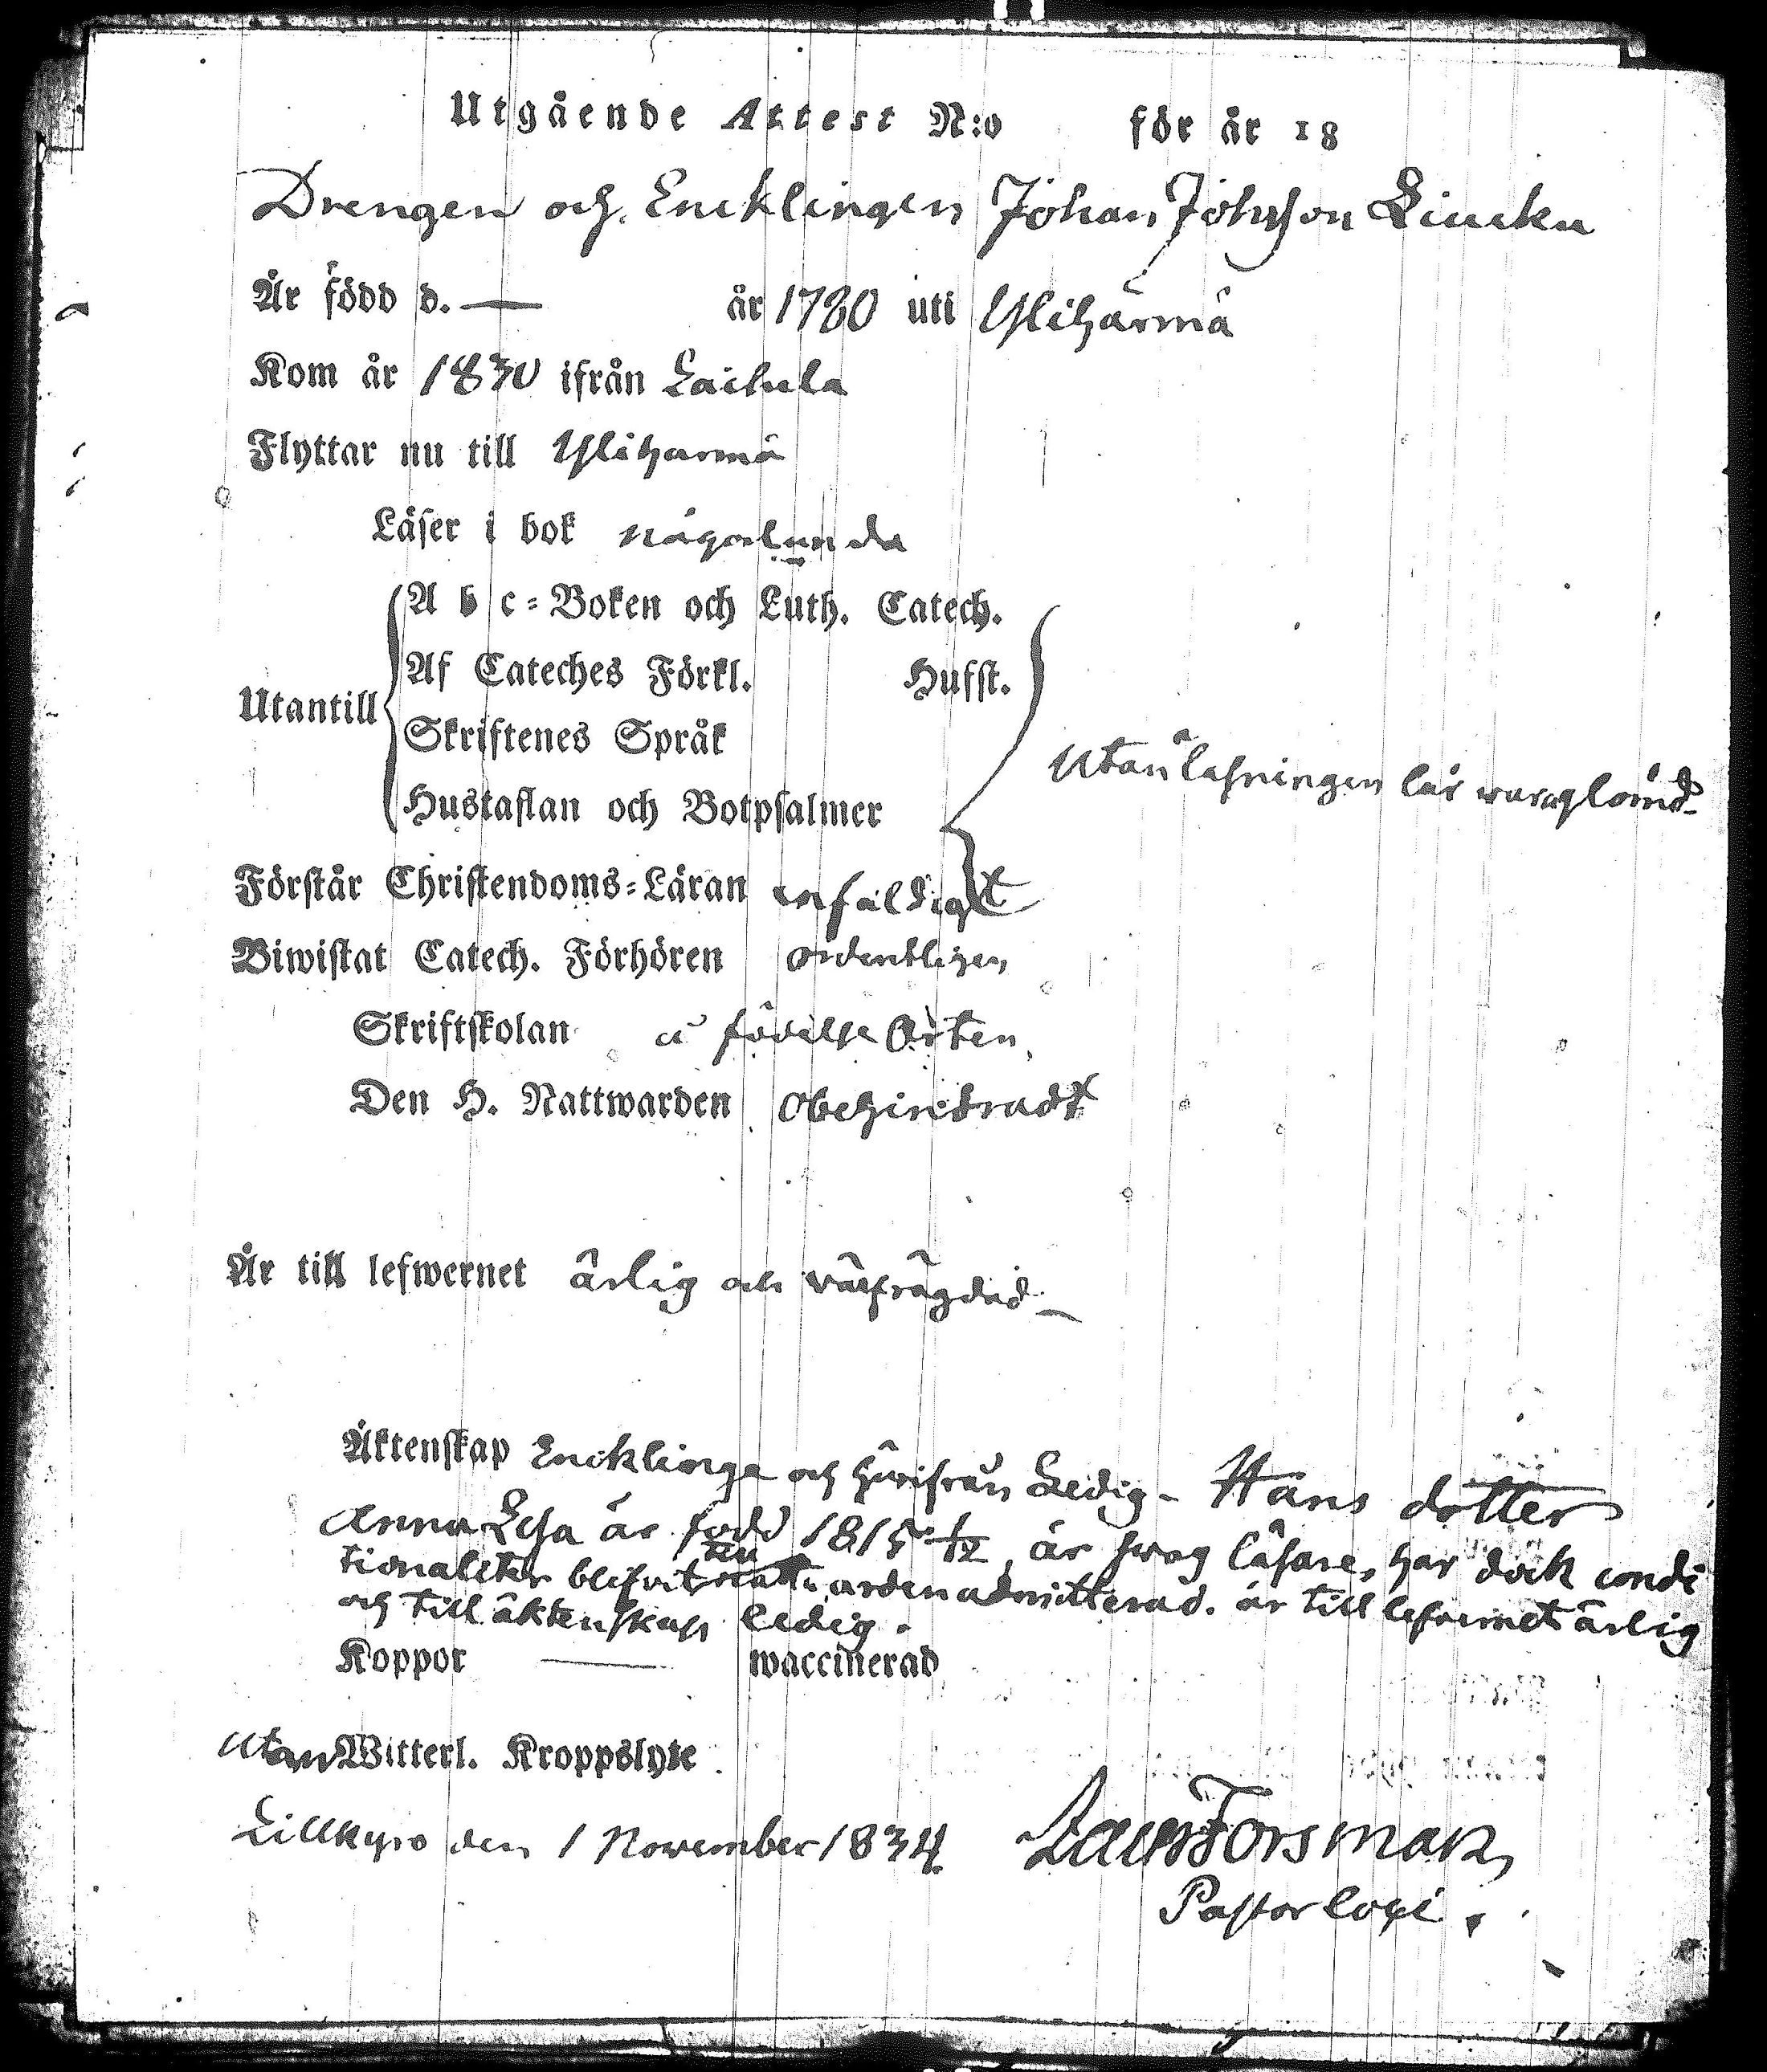 Utgående Attest N:o för år 18
Drengen och Encklingen Johan Johsson Liucku
Är född d. — år 1780 uti Ylihärmä
Kom år 1830 ifrån Laihela
Flyttar nu till Ylihärmä
Läser i bok någorlunda
A b c-Boken och Luth. Catech.
Af Cateches Förkl. Hufst.
Utantill
Skriftenes Språk
Utanläsningen lär wara glömd
Hustaflan och Botpsalmer
Förstår Christendoms-Läran enfäldigt
Biwistat Catech. Förhören ordentligen
Skriftskolan å födelse Orten
Den H. Nattwarden obehindradt
Är till lefwernet ärlig och välfrägdad
Äktenskap Encklinge och härifrån Ledig - Hans dotter
Anna Lisa är född 1815 1/12, är swag läsare, har dock condi
tionaliter blifvit till nattwarden admitterad. är till lefvernet ärlig
och till äktenskap ledig.
Koppor — waccinerad
utan Witterl. Kroppslyte
Lillkyro den 1 November 1834. Forsman
Pastor loci.